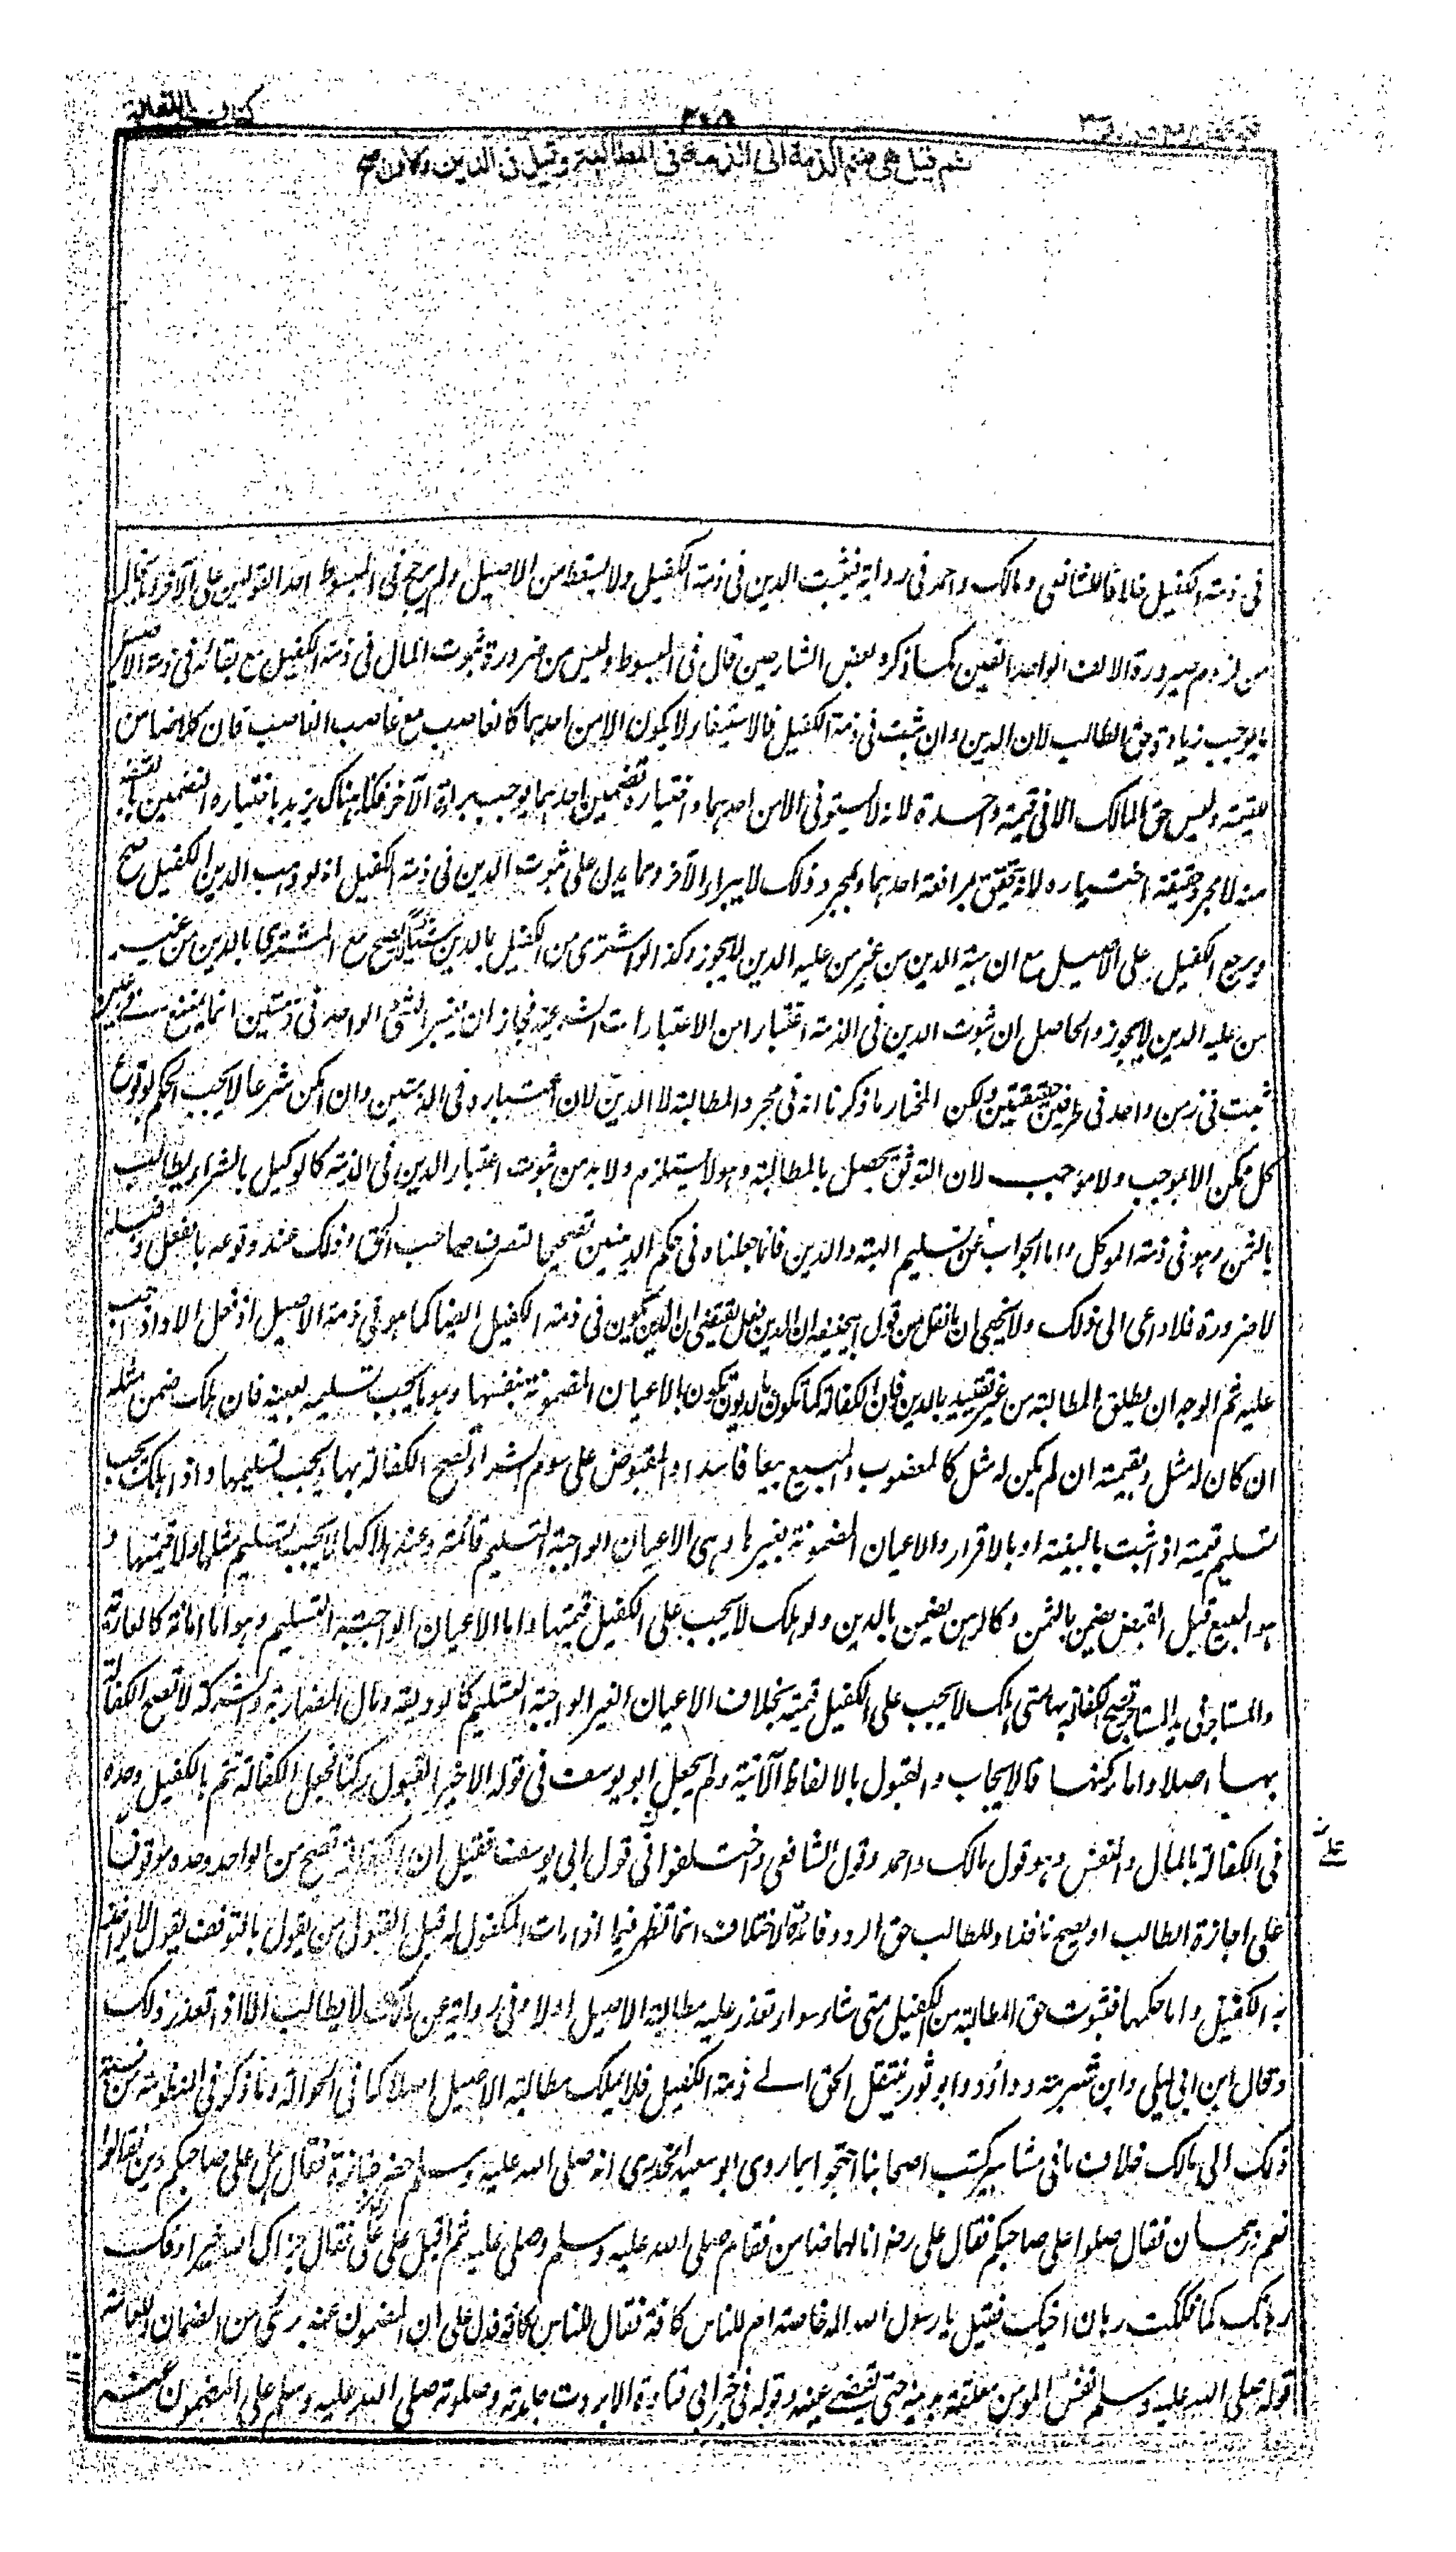 كتاب الكفالة
ثم قيل هي ضم الذمة الى الذمة في المطالبة وقيل في الدين والاول اصح
في ذمة الكفيل خلافا للشافعي ومالك واحمد في رواية فيثبت الدين في ذمة الكفيل ولا يسقط من الاصيل ولم يرجح في المبسوط احد القولين على الآخر وما يخال
من لزوم صيرورة الالف الواحد الفين كما ذكره بعض الشارحين قال في المبسوط وليس من ضرورة ثبوت المال في ذمة الكفيل مع بقائه في ذمة الاصيل
ما يوجب زيادة حق الطالب لان الدين وان ثبت في ذمة الكفيل فالاستيفاء لا يكون الا من احدهما كالغاصب مع غاصب الغاصب فان كلا ضامن
للقيمة وليس حق المالك الا في قيمة واحدة لانه لا يستوفي الا من احدهما واختياره تضمين احدهما يوجب براءة الآخر فكذا هناك يريد باختياره التضمين
منه لا مجرد حقيقة اختياره لانه يتحقق بمرافعة احدهما وبمجرد ذلك لا يبرأ الآخر ومما يدل على ثبوت الدين في ذمة الكفيل انه لو وهب الدين للكفيل صح
ويرجع الكفيل على الاصيل مع ان هبة الدين من غير من عليه الدين لا يجوز وكذا لو اشترى من الكفيل بالدين شيئا يصح مع ان المشترى بالدين من غير
من عليه الدين لا يجوز والحاصل ان ثبوت الدين في الذمة اعتبار من الاعتبارات الشرعية فجاز ان يعتبر الشئ الواحد في ذمتين انما يمتنع في عين
ثبت في زمن واحد في ظرفين حقيقيين ولكن المختار ما ذكرنا انه في مجرد المطالبة لا الدين لان اعتباره في الذمتين وان امكن شرعا لا يجب الحكم بوقوع
كل ممكن الا بموجب ولا موجب لان التوثق يحصل بالمطالبة وهو لا يستلزم ولا بد من ثبوت اعتبار الدين في الذمة كالوكيل بالشراء يطالب
بالثمن وهو في ذمة الموكل واما الجواب عن تسليم الهبة والدين فانا جعلناه في حكم الدينين تصحيحا لتصرف صاحب الحق وذلك عند وقوعه بالفعل وقبله
لا ضرورة فلا داعى الى ذلك ولا يخفى ان ما نقل من قول ابي حنيفة ان الدين فعل يقتضى ان الدين يكون في ذمة الكفيل ايضا كما هو في ذمة الاصيل اذ فعل الاداء واجب
عليه ثم الوجه ان يطلق المطالبة من غير تقييد بالدين فان الكفالة كما تكون بالديون تكون بالاعيان المضمونة بنفسها وهو ما يجب تسليمه بعينه فان هلك ضمن مثله
ان كان له مثل وبقيمته ان لم يكن له مثل كالمغصوب والمبيع بيعا فاسدا والمقبوض على سوم الشراء تصح الكفالة بها ويجب تسليمها واذا هلكت يجب
تسليم قيمته اذا ثبت بالبينة او بالاقرار والاعيان المضمونة بغيرها وهي الاعيان الواجبة التسليم قائمة وعند هلاكها لا يجب تسليم مثلها ولا قيمتها و
هو المبيع قبل القبض يضمن بالثمن وكالرهن يضمن بالدين ولو هلك لا يجب على الكفيل قيمتها واما الاعيان الواجبة التسليم وهو امانة كالعارية
والمستاجر في يد المستاجر تصح الكفالة بها متى هلك لا يجب على الكفيل قيمته بخلاف الاعيان الغير الواجبة التسليم كالوديعة ومال المضاربة والشركة لا تصح الكفالة
بها اصلا واما ركنها فالايجاب والقبول بالالفاظ الآتية ولم يجعل ابو يوسف في قوله الاخير القبول ركنا فجعل الكفالة تتم بالكفيل وحده
في الكفالة بالمال والنفس وهو قول مالك واحمد وقول الشافعي واختلفوا في قول ابي يوسف فقيل ان الكفالة تصح من الواحد وحده موقوفا
على اجازة الطالب او يصح نافذا وللطالب حق الرد وفائدة الاختلاف انما تظهر فيما اذا مات المكفول له قبل القبول من يقول بالتوقف يقول لا يؤاخذ
به الكفيل واما حكمها فثبوت حق المطالبة من الكفيل متى شاء سواء تعذر عليه مطالبة الاصيل اولا وفي رواية عن مالك لا يطالب الا اذا تعذر ذلك
وقال ابن ابي ليلى وابن شبرمة وداؤد وابو ثور ينتقل الحق الى ذمة الكفيل فلا يملك مطالبة الاصيل اصلا كما في الحوالة وما ذكر في المنظومة من نسبة
ذلك الى مالك خلاف ما في مشاهير كتب اصحابنا احتجوا بما روى ابو سعيد الخدري انه صلى الله عليه وسلم حضر جنازة فقال هل على صاحبكم دين فقالوا
نعم درهمان فقال صلوا على صاحبكم فقال على رضه انا لهما ضامن فقام صلى الله عليه وسلم وصلى عليه ثم اقبل على على فقال جزاك الله خيرا وفك
رهانك كما فككت رهان اخيك فقيل يا رسول الله اله خاصة ام للناس كافة فقال للناس كافة فدل على ان المضمون عنه برئ من الضمان وللعامة
قوله صلى الله عليه وسلم نفس المومن معلقة بدينه حتى يقضى عنه وقوله في خبر ابي قتادة الآن بردت جلدته وصلوته صلى الله عليه وسلم على المضمون عنه